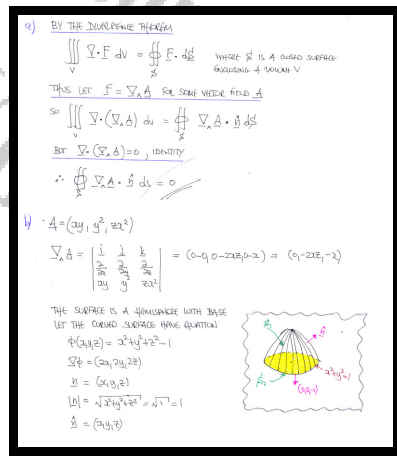 a) BY THE DIVERGENCE THEOREM
∭_V ∇·F dv = ∯_S F·dS WHERE S IS A CLOSED SURFACE
ENCLOSING A VOLUME V
THUS LET F = ∇∧A FOR SOME VECTOR FIELD A
SO ∭_V ∇·(∇∧A) dv = ∯_S ∇∧A · n̂ dS
BUT ∇·(∇∧A)=0, IDENTITY
∴ ∯_S ∇∧A · n̂ ds = 0
b) · A = (xy, y², zx²)
∇∧A = | i j k | = (0-0, 0-2xz, 0-x) = (0, -2xz, -x)
| ∂/∂x ∂/∂y ∂/∂z |
| xy y² zx² |
THE SURFACE IS A HEMISPHERE WITH BASE
LET THE CURVED SURFACE HAVE EQUATION
φ(x,y,z) = x²+y²+z²-1
∇φ = (2x, 2y, 2z)
n = (x,y,z)
|n| = √x²+y²+z² = √1 = 1
n̂ = (x,y,z)
S₁
n̂
x²+y²=1
S₂
(0,0,-1)